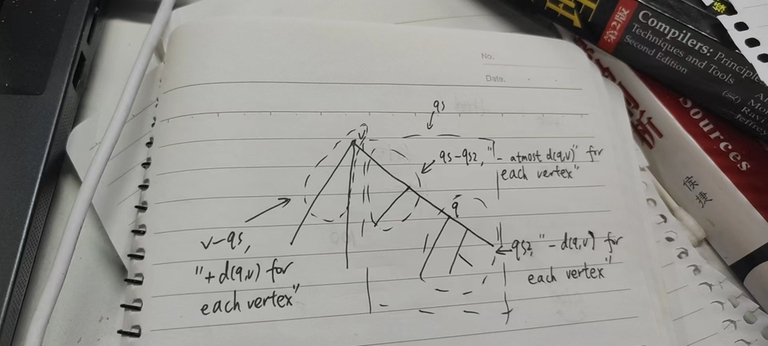 No.
Date.
qs
v
qs-qs2, "- atmost d(q,v)" for
each vertex"
q
v-qs,
"+d(q,v) for
each vertex"
qs2, "-d(q,v) for
each vertex"
第2版
Compilers: Principle
Techniques and Tools
Second Edition
sources